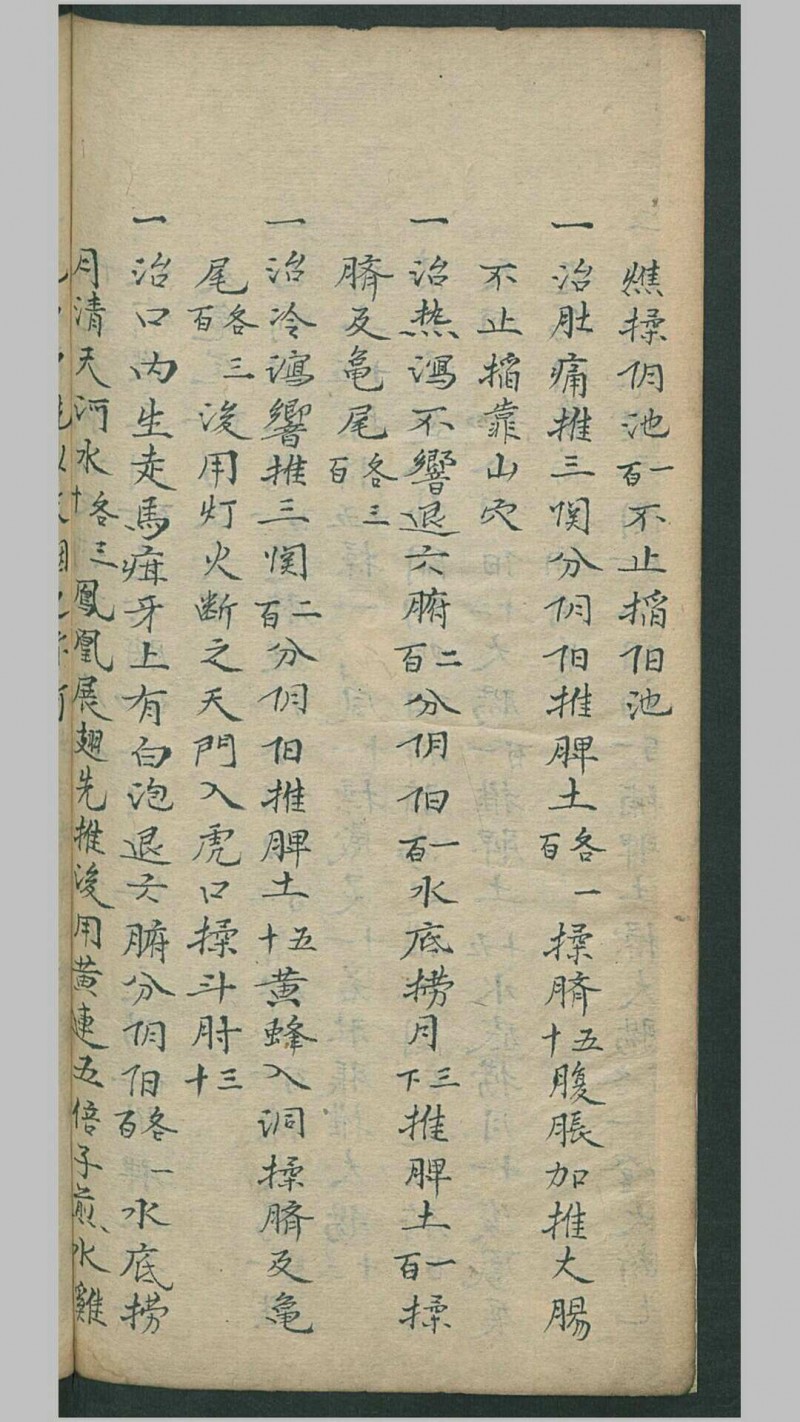 燋揉阴池一百不止掐阳池
一治肚痛推三関分阴阳推脾土各一百揉臍五十腹脹加推大腸
不止掐靠山穴
一治热瀉不響退六腑二百分阴阳一百水底捞月三下推脾土一百揉
臍及亀尾各三百
一治冷瀉響推三関二百分阴阳推脾土五十黄蜂入洞揉臍及亀
尾各三百后用灯火断之天門入虎口揉斗肘三十
一治口内生走馬疳牙上有白泡退六腑分阴阳各一百水底捞
月清天河水各三十鳳凰展翅先推后用黄連五倍子煎水雞